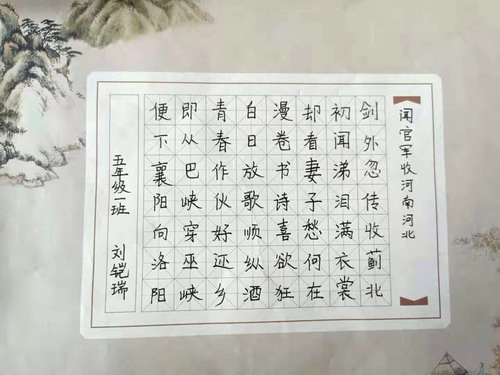 闻官军收河南河北
剑外忽传收蓟北
初闻涕泪满衣裳
却看妻子愁何在
漫卷书诗喜欲狂
白日放歌顺纵酒
青春作伙好还乡
即从巴峡穿巫峡
便下襄阳向洛阳
五年级一班 刘铠瑞